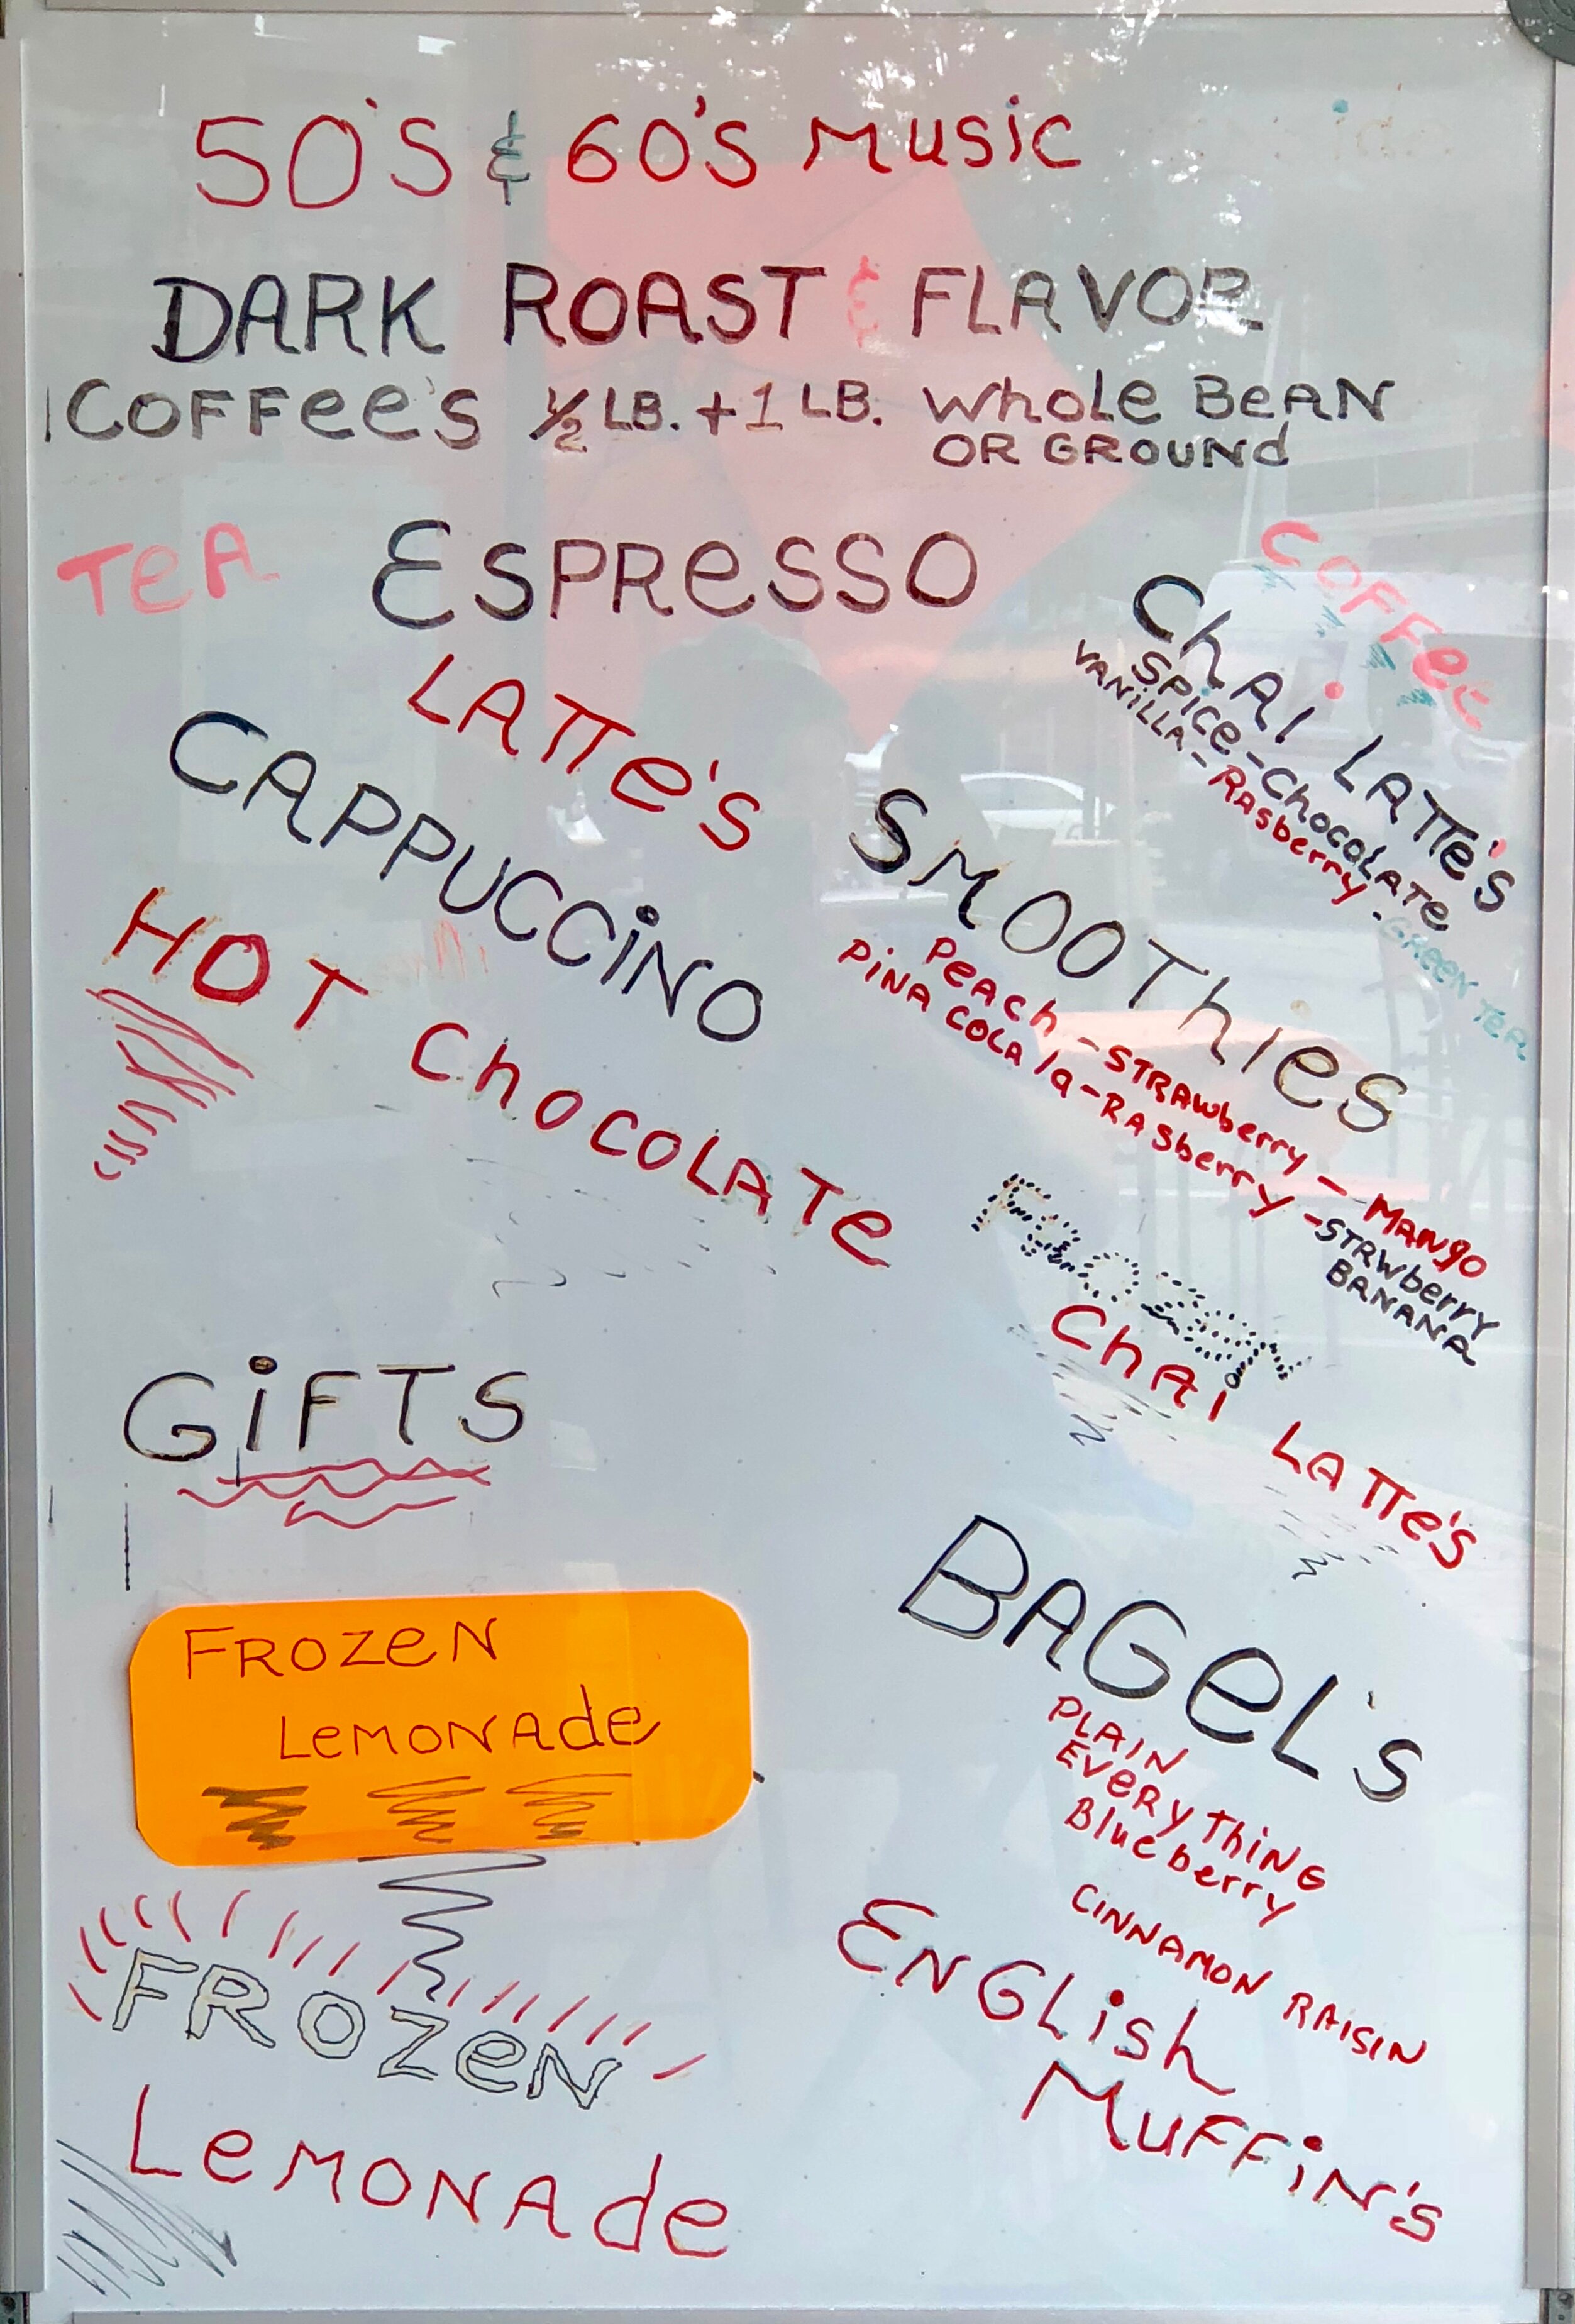 50'S & 60'S MUSIC
DARK ROAST & FLAVOR
COFFee'S ½ LB. + 1 LB. Whole BeAN
OR GROUNd
TeA
ESPResso
COFFee
LATTe's
ChAi LATTe's
SPice - ChocoLATe
VANiLLA - RAsberry - GReeN TeA
CAPPUCCiNO
HOT ChocoLATe
SMOOThies
PeACh - STRAwberry - MANgo
PiNA COLA la - RAsberry - STRwberry
BANANA
FROZeN
ChAi LATTe's
GiFTS
BAGeL's
PLAIN
EVeRYThiNG
Blueberry
CINNAMON RAISIN
FROZeN
LeMONAde
ENGLish
MuFFiN's
FROZeN
LeMONAde